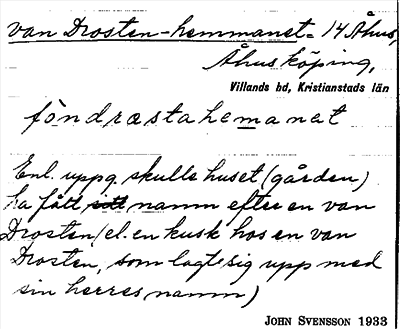 van Drosten-hemmanet = 14 Åhus,
Åhus köping,
Villands hd, Kristianstads län
fòndræstahemanet
Enl. uppg. skulle huset (gården)
ha fått namn efter en van
Drosten (el. en kusk hos en van
Drosten, som lagt sig upp med
sin herres namn)
JOHN SVENSSON 1933